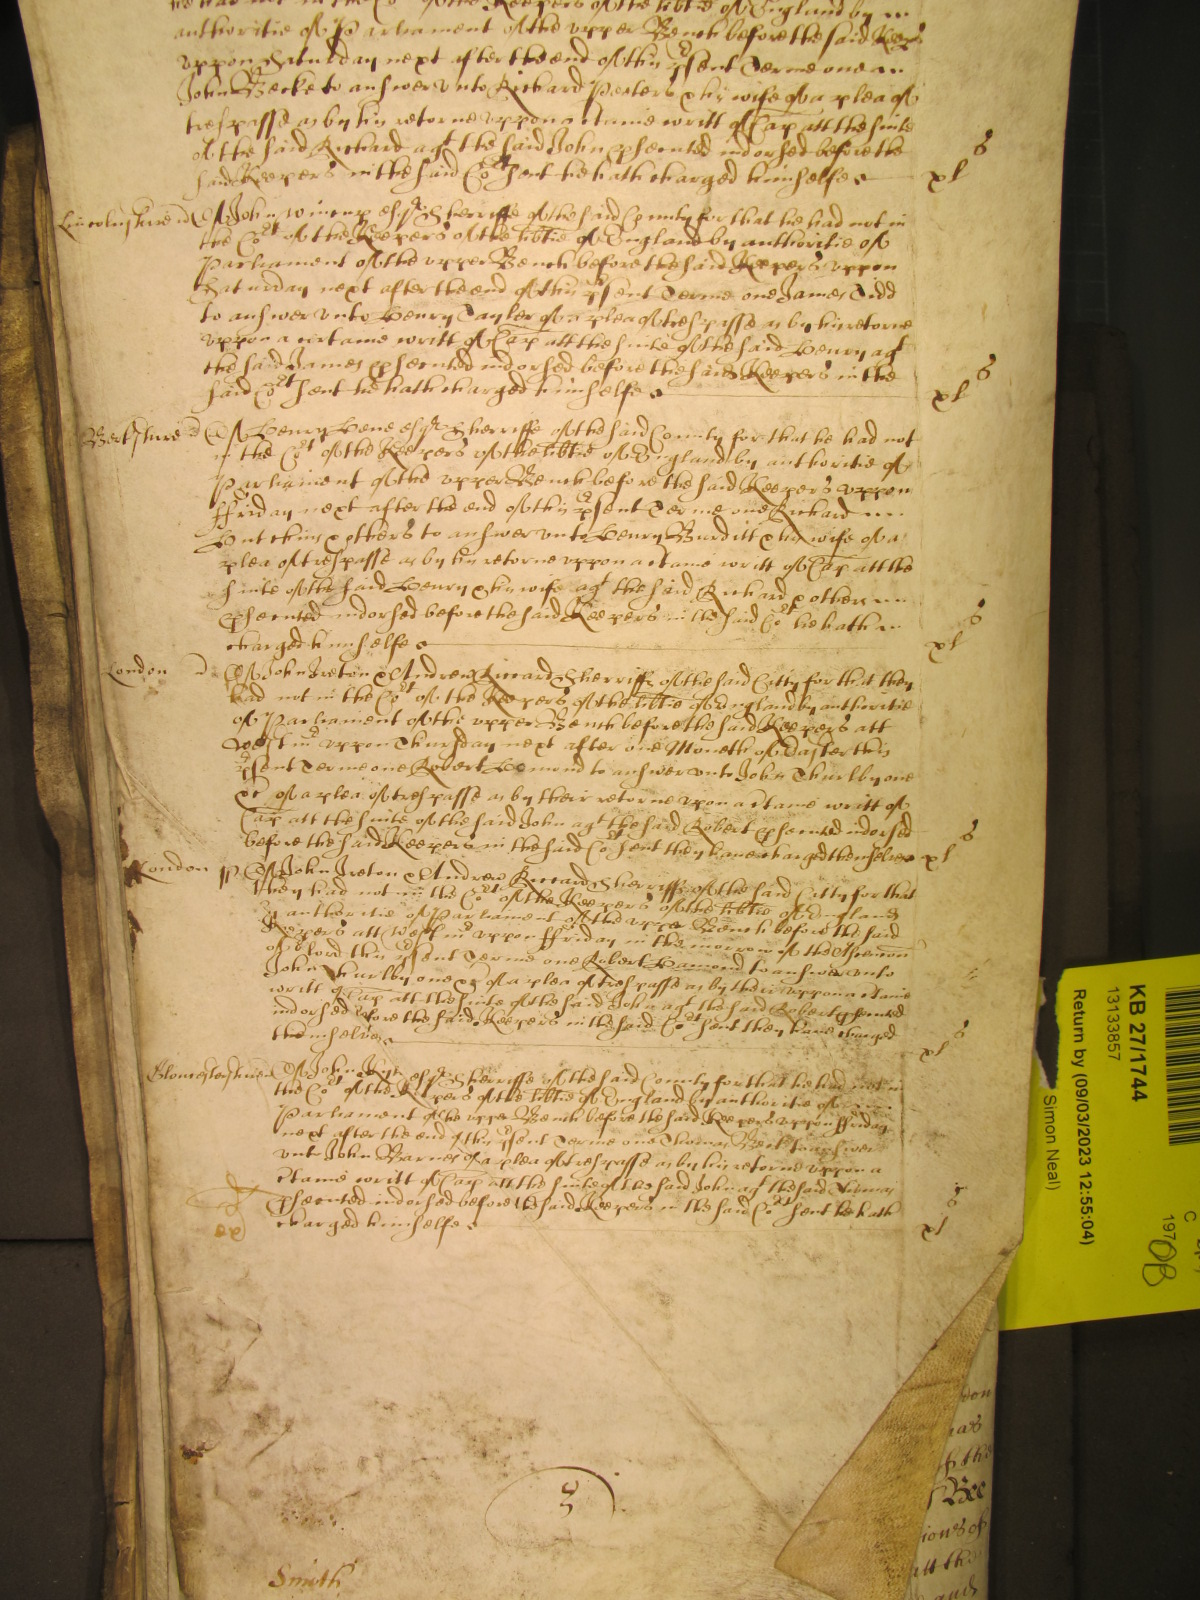 he had not in the Cot of the Keepers of the lib'tie of England by
authoritie of Parliament of the upper Bench before the said Keep's
uppon Saturday next after the end of this p'sent Terme one
John Becke to answer unto Richard Peeters & his wife of a plea of
trespasse as by his retorne uppon a c'taine writt of Cap att the suite
of the said Richard agt the said John p'sented indorsed before the
said Keepers in the said Cort sent he hath charged himselfe xls
Lincolnshire Of John Winn esqr Sherriffe of the said County for that he had not in
the Cort of the Keepers of the lib'tie of England by authoritie of
Parliament of the upper Bench before the said Keepers uppon
Saturday next after the end of this p'sent Terme one James Tidd
to answer unto Henry Tayler of a plea of trespasse as by his retorne
uppon a certaine writt of Cap att the suite of the said Henry agt
the said James p'sented indorsed before the said Keepers in the
said Cort sent he hath charged himselfe xls
Berkshire Of Henry esqr Sherriffe of the said County for that he had not
in the Cort of the Keepers of the lib'tie of England by authoritie of
Parliament of the upper Bench before the said Keepers uppon
ffriday next after the end of this p'sent Terme one Richard
Hutchins & others to answer unto Henry Burditt & his wife of a
plea of trespasse as by his retorne uppon a c'taine writt of Cap att the
suite of the said Henry & his wife agt the said Richard & others
p'sented indorsed before the said Keepers in the said Cort he hath
charged himselfe xls
London Of John Ireton & Andrew Riccard Sherriffs of the said Citty for that they
had not in the Cort of the Keepers of the lib'tie of England by authoritie
of Parliament of the upper Bench before the said Keepers att
Westmr uppon Thursday next after one Moneth of Easter this
p'sent Terme one Robert Hamond to answer unto John Thurlby one
&c of a plea of trespasse as by their retorne upon a c'taine writt of
Cap att the suite of the said John agt the said Robert p'sented indorsed
before the said Keepers in the said Cort sent they have charged themselves xls
London Of John Ireton & Andrew Riccard Sherriffs of the said Citty for that
they had not in the Cort of the Keepers of the lib'tie of England
by authoritie of Parliament of the upper Bench before the said
Keepers att Westmr uppon ffriday in the morrow of the Assencon
of o'r lord this p'sent Terme one Robert Hamond to answer unto
John Thurlby one &c of a plea of trespasse as by their uppon a c'taine
writt of Cap att the suite of the said John agt the said Robert p'sented
indorsed before the said Keepers in the said Cort sent they have charged
themselves xls
Gloucestershire Of John esqr Sherriffe of the said County for that he had not in
the Cort of the Keepers of the lib'tie of England by authoritie of
Parliament of the upper Bench before the said Keepers uppon ffriday
next after the end of this p'sent Terme one Thomas Beck to answer
unto John Barnes of a plea of trespasse as by his retorne uppon a
c'taine writt of Cap att the suite of the said John agt the said Thomas
p'sented indorsed before the said Keepers in the said Cort sent he hath
charged himselfe xls
Smith
KB 27/1744
13133857
Return by (09/03/2023 12:55:04)
Simon Neal)